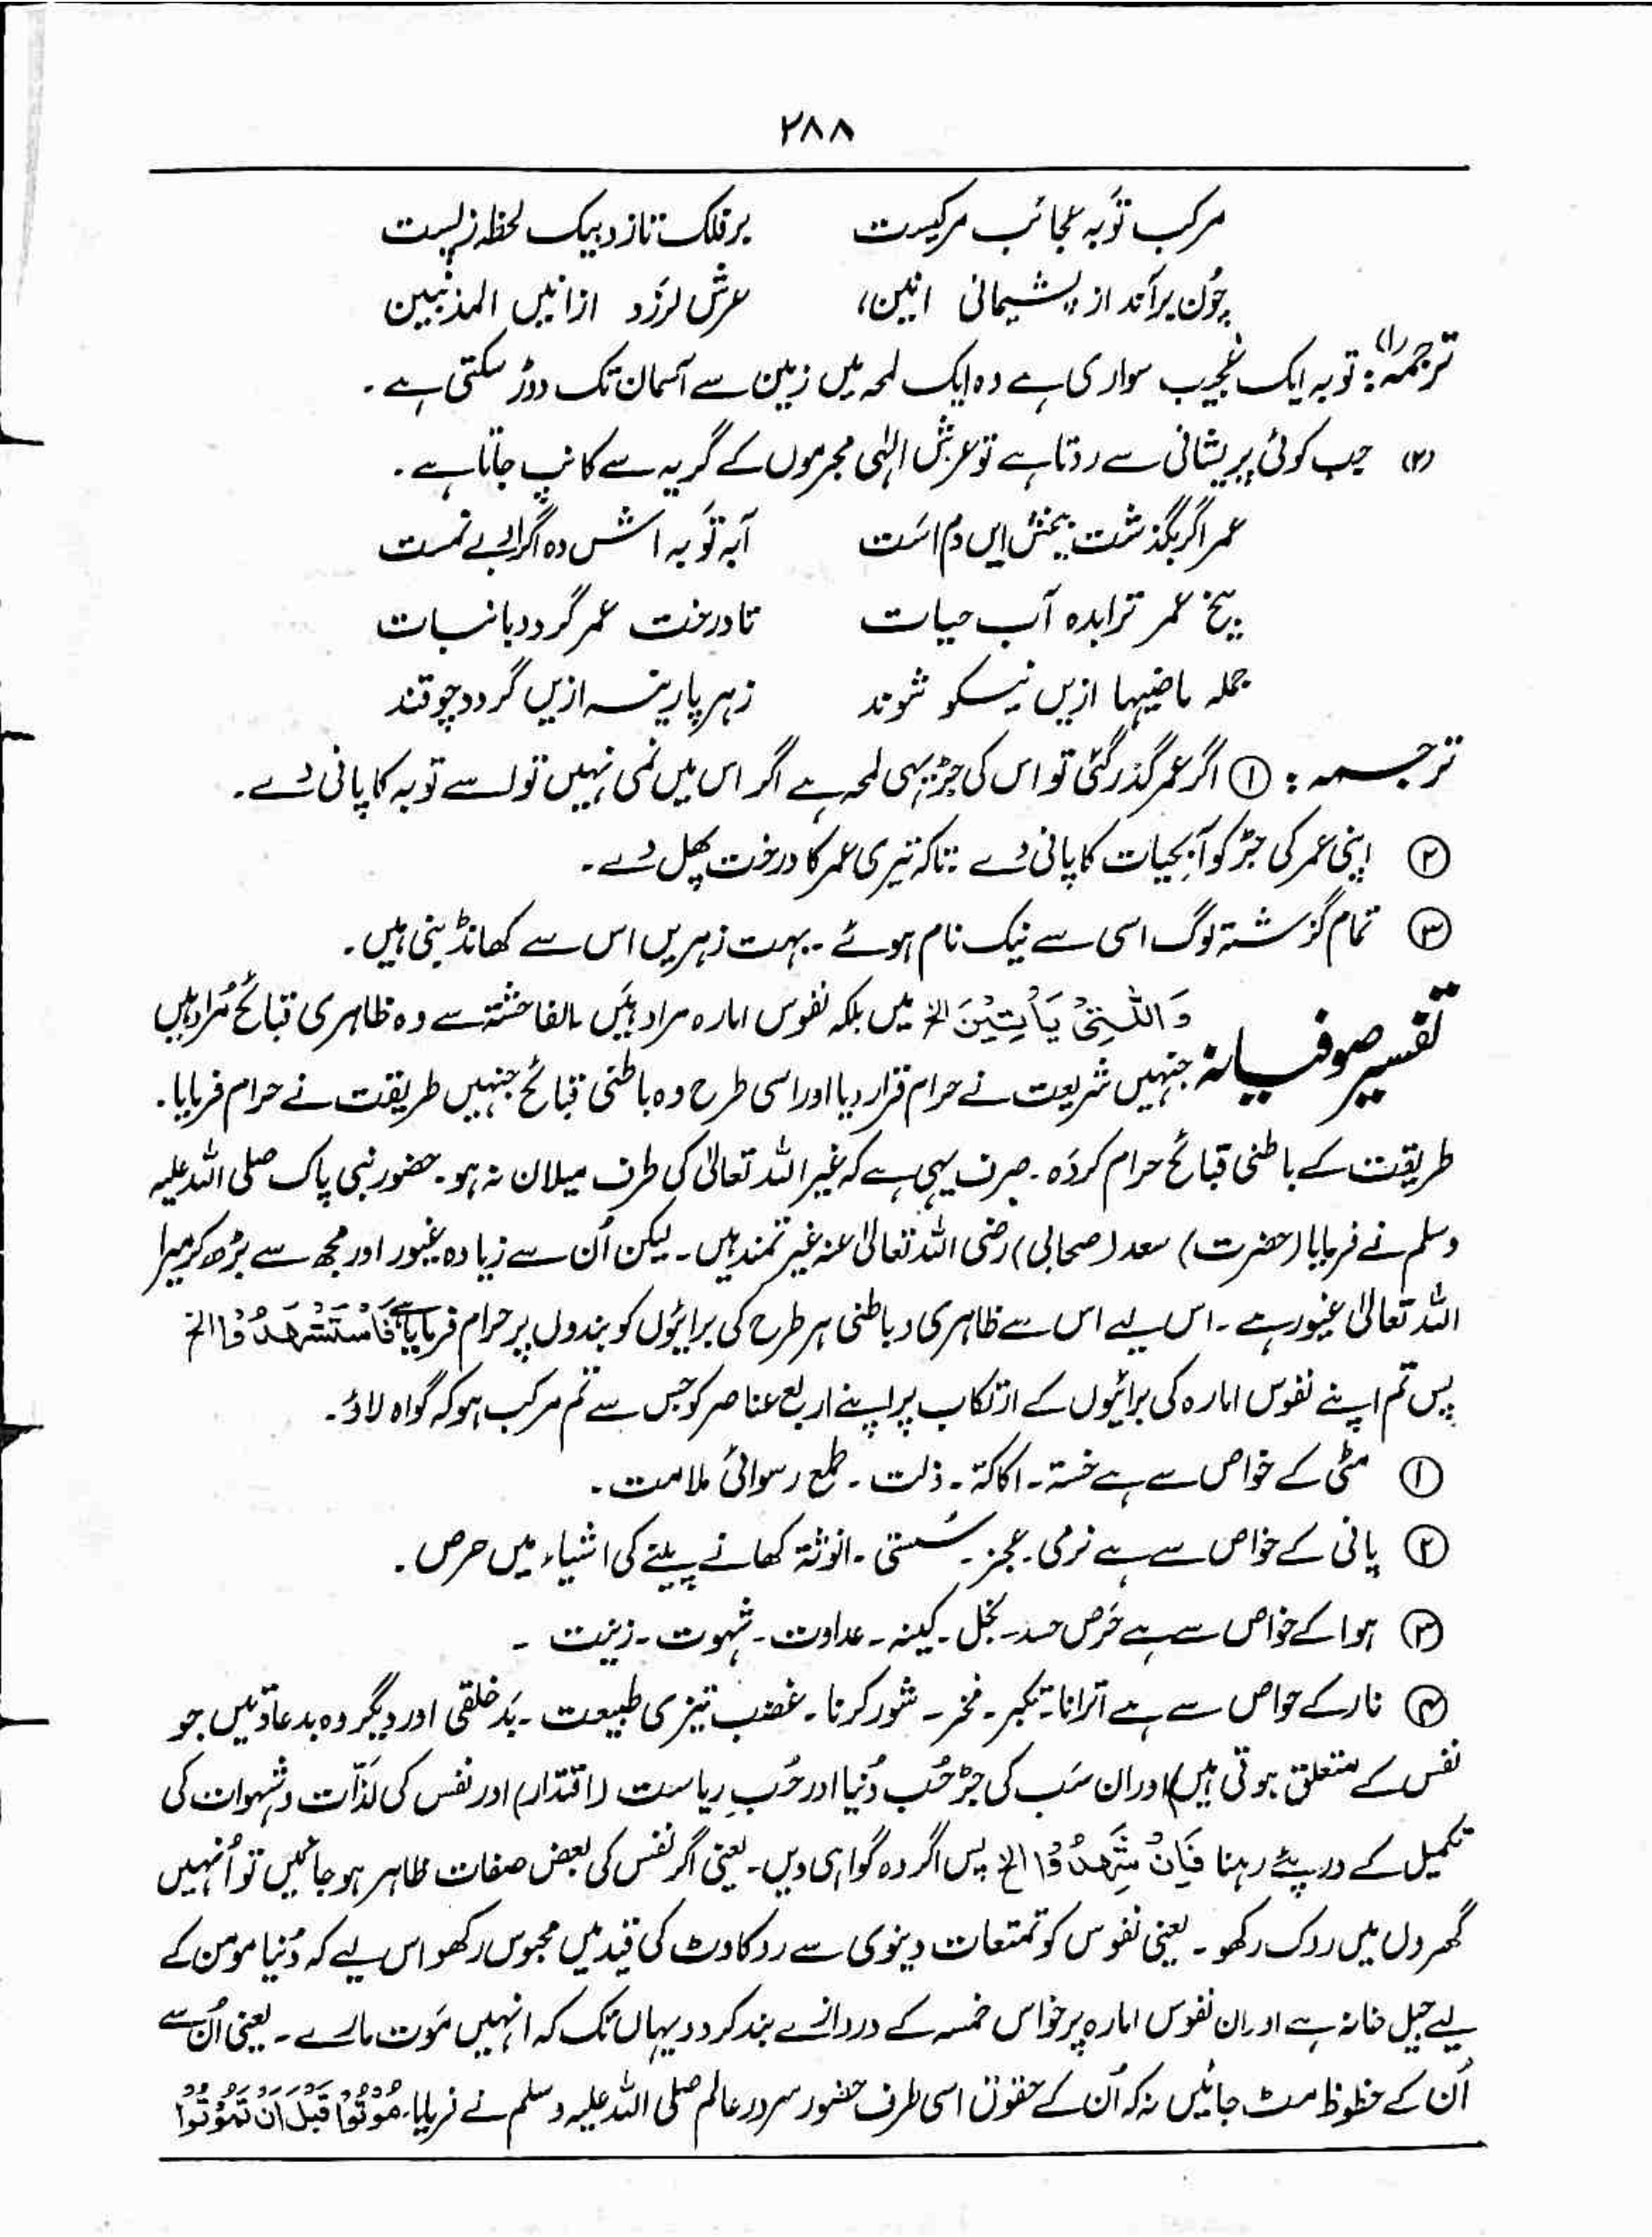 ۲۸۸
مرکب توبہ عجائب مرکبست برفلک تازد بیک لحظہ زپست
چوں برآند از پشیمانی انین، عرش لرزد از انیں المذنبین
ترجمہ(۱): توبہ ایک عجیب سواری ہے وہ ایک لمحہ میں زمین سے آسمان تک دوڑ سکتی ہے۔
(۲) جب کوئی پریشانی سے روتا ہے تو عرش الہٰی مجرموں کے گریہ سے کانپ جاتا ہے۔
عمر اگر بگذشت بیخش ایں دم است آبہ توبہ اش دہ اگر او بے نمست
بیخ عمر ترا بدہ آب حیات تا درخت عمر گردد بانبات
جملہ ماضیہا ازیں نیکو شوند زہر پارینہ ازیں گردد چو قند
ترجمہ: ① اگر عمر گذر گئی تو اس کی جڑ یہی لمحہ ہے اگر اس میں نمی نہیں تو اسے توبہ کا پانی دے۔
② اپنی عمر کی جڑ کو آبِحیات کا پانی دے تاکہ تیری عمر کا درخت پھل دے۔
③ تمام گزشتہ لوگ اسی سے نیک نام ہوئے۔ بہت زہریں اس سے کھانڈ بنی ہیں۔
تفسیر صوفیانہ وَاللّٰتِیْ یَاْتِیْنَ الخ میں بلکہ نفوس امارہ مراد ہیں بالفاحشۃ سے وہ ظاہری قبائح مُراد ہیں
جنہیں شریعت نے حرام قرار دیا اور اسی طرح وہ باطنی قبائح جنہیں طریقت نے حرام فرمایا۔
طریقت کے باطنی قبائح حرام کردہ۔ صرف یہی ہے کہ غیر اللہ تعالیٰ کی طرف میلان نہ ہو۔ حضور نبی پاک صلی اللہ علیہ
وسلم نے فرمایا (حضرت) سعد (صحابی) رضی اللہ تعالیٰ عنہ غیرتمند ہیں۔ لیکن اُن سے زیادہ غیور اور مجھ سے بڑھ کر میرا
اللہ تعالیٰ غیور ہے۔ اس لیے اس سے ظاہری و باطنی ہر طرح کی برائیوں کو بندوں پر حرام فرمایا ہے فَاسْتَشْهِدُوْا الخ
پس تم اپنے نفوس امارہ کی برائیوں کے ارتکاب پر اپنے اربع عناصر کو جس سے تم مرکب ہو کہ گواہ لاؤ۔
① مٹی کے خواص سے ہے خستہ۔ اکاکتہ۔ ذلت۔ طمع رسوائی ملامت۔
② پانی کے خواص سے ہے نرمی۔ عجز۔ سُستی۔ انوثۃ کھانے پینے کی اشیاء میں حرص۔
③ ہوا کے خواص سے ہے حَرص حسد۔ بخل۔ کینہ۔ عداوت۔ شہوت۔ زینت ۔
④ نار کے خواص سے ہے اترانا۔ تکبر۔ فخر۔ شور کرنا۔ غضب تیزی طبیعت۔ بَد خلقی اور دیگر وہ بد عادتیں جو
نفس کے متعلق ہوتی ہیں) اور ان سَب کی جڑ حُب دُنیا اور حُبِ ریاست (اقتدار) اور نفس کی لذّات و شہوات کی
تکمیل کے درپئے رہنا فَاِنْ شَهِدُوْا الخ پس اگر وہ گواہی دیں۔ یعنی اگر نفس کی بعض صفات ظاہر ہو جائیں تو اُنہیں
گھروں میں روک رکھو۔ یعنی نفوس کو تمتعات دینوی سے رکاوٹ کی قید میں محبوس رکھو اس لیے کہ دُنیا مومن کے
لیے جیل خانہ ہے اور ان نفوس امارہ پر خواس خمسہ کے دروازے بند کر دو یہاں تک کہ انہیں مَوت مارے۔ یعنی اُن سے
اُن کے حظوظ مٹ جائیں نہ کہ اُن کے حقوق اسی طرف حضور سرورعالم صلی اللہ علیہ وسلم نے فرمایا۔ مُوْتُوْا قَبْلَ اَنْ تَمُوْتُوْا